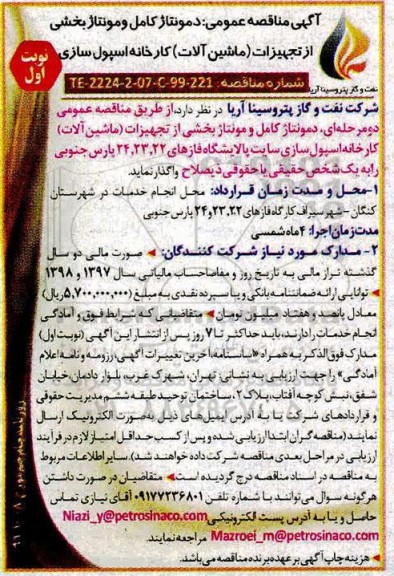 آگهی مناقصه عمومی: دمونتاژ کامل و مونتاژ بخشی
از تجهیزات (ماشین آلات) کارخانه اسپول سازی
نوبت
اول
شماره مناقصه: TE-2224-2-07-C-99-221
نفت و گاز پتروسینا آریا
شرکت نفت و گاز پتروسینا آریا در نظر دارد، از طریق مناقصه عمومی
دومرحله‌ای، دمونتاژ کامل و مونتاژ بخشی از تجهیزات (ماشین آلات)
کارخانه اسپول سازی سایت پالایشگاه فازهای ۲۴،۲۳،۲۲ پارس جنوبی
را به یک شخص حقیقی یا حقوقی ذیصلاح واگذار نماید.
۱- محل و مدت زمان قرارداد: محل انجام خدمات در شهرستان
کنگان - شهر سیراف کارگاه فازهای ۲۳،۲۲ و ۲۴ پارس جنوبی
مدت زمان اجرا: ۴ ماه شمسی
۲- مدارک مورد نیاز شرکت کنندگان: صورت مالی دو سال
گذشته تراز مالی به تاریخ روز و مفاصاحساب مالیاتی سال ۱۳۹۷ و ۱۳۹۸
توانایی ارائه ضمانتنامه بانکی و یا سپرده نقدی به مبلغ (۵,۷۰۰,۰۰۰,۰۰۰ ریال)
معادل پانصد و هفتاد میلیون تومان متقاضیانی که شرایط فوق و آمادگی
انجام خدمات را دارند، باید حداکثر تا ۷ روز پس از انتشار این آگهی (نوبت اول)
مدارک فوق الذکر به همراه «اساسنامه، آخرین تغییرات آگهی، رزومه و نامه اعلام
آمادگی» را جهت ارزیابی به نشانی تهران، شهرک غرب، بلوار دادمان خیابان
شفق، نبش کوچه آفتاب، پلاک ۲، ساختمان توحید طبقه ششم مدیریت حقوقی
و قراردادهای شرکت یا به آدرس ایمیلهای ذیل به صورت الکترونیک ارسال
نمایند (مناقصه گران ابتدا ارزیابی شده و پس از کسب حداقل امتیاز لازم در فرآیند
ارزیابی در مراحل بعدی مناقصه شرکت داده خواهند شد). سایر اطلاعات مربوط
به مناقصه در اسناد مناقصه درج گردیده است متقاضیان در صورت داشتن
هرگونه سوال می‌توانند با شماره تلفن ۰۹۱۷۷۲۳۶۸۰۱ آقای نیازی تماس
حاصل و یا به آدرس پست الکترونیکی Niazi_y@petrosinaco.com
Mazroei_m@petrosinaco.com مراجعه نمایند.
هزینه چاپ آگهی بر عهده برنده مناقصه می‌باشد.